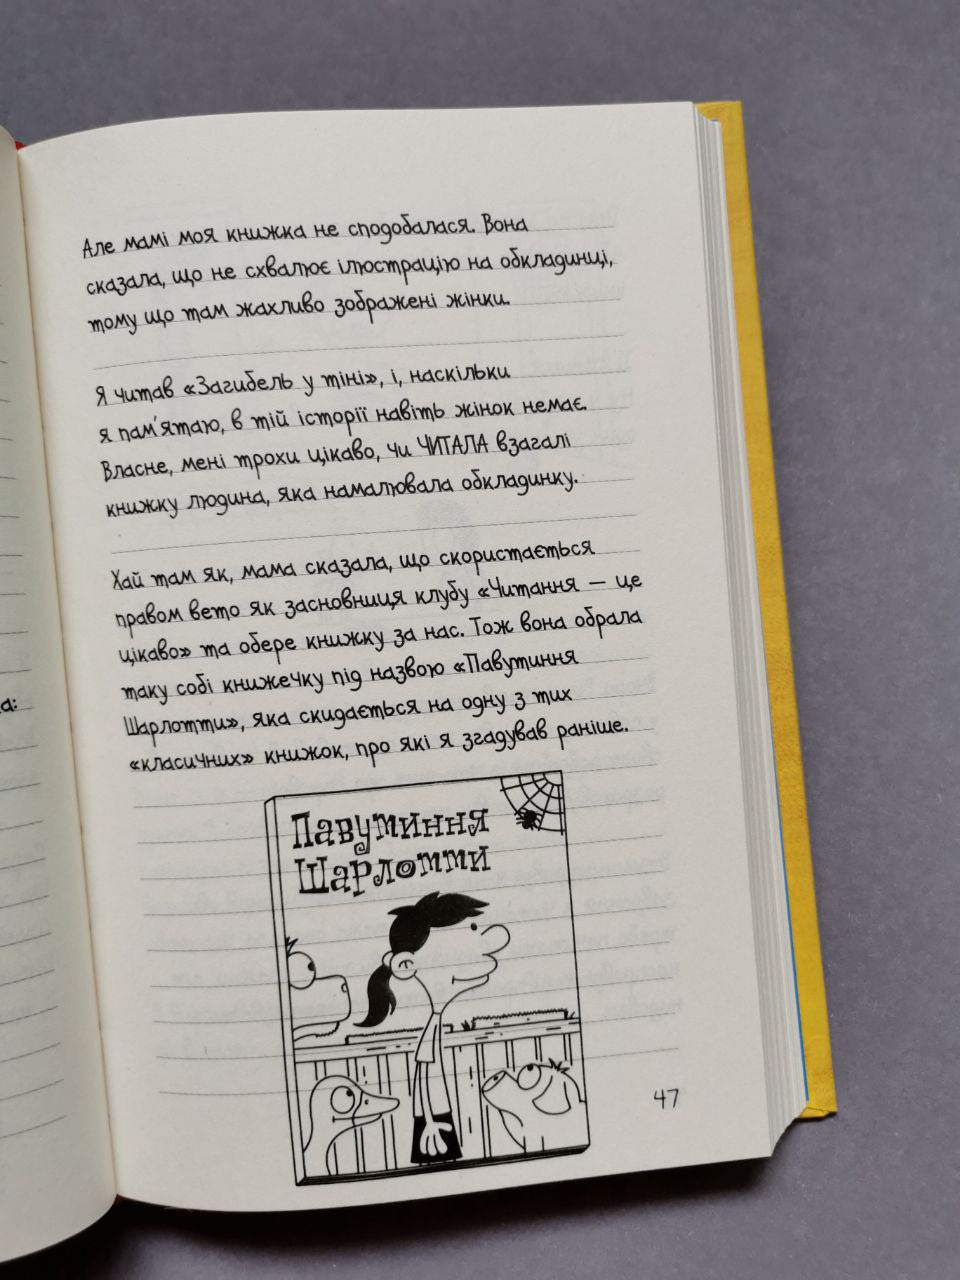 Але мамі моя книжка не сподобалася. Вона
сказала, що не схвалює ілюстрацію на обкладинці,
тому що там жахливо зображені жінки.
Я читав «Загибель у тіні», і, наскільки
я пам'ятаю, в тій історії навіть жінок немає.
Власне, мені трохи цікаво, чи ЧИТАЛА взагалі
книжку людина, яка намалювала обкладинку.
Хай там як, мама сказала, що скористається
правом вето як засновниця клубу «Читання — це
цікаво» та обере книжку за нас. Тож вона обрала
таку собі книжечку під назвою «Павутиння
Шарлотти», яка скидається на одну з тих
«класичних» книжок, про які я згадував раніше.
Павутиння
Шарлотти
47